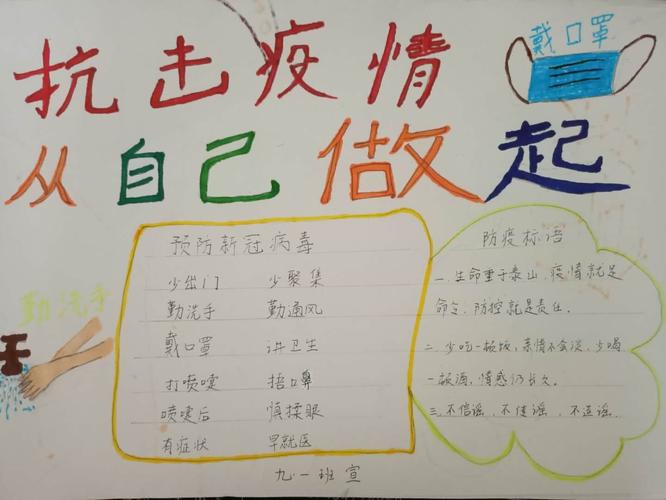 抗击疫情
戴口罩
从自己做起
预防新冠病毒
少出门 少聚集
勤洗手 勤通风
戴口罩 讲卫生
打喷嚏 捂口鼻
喷嚏后 慎揉眼
有症状 早就医
九·一班宣
防疫标语
一.生命重于泰山,疫情就是
命令,防控就是责任。
二.少吃一顿饭,亲情不会淡,少喝
一顿酒,情感仍长久。
三.不信谣,不传谣,不造谣.
勤洗手